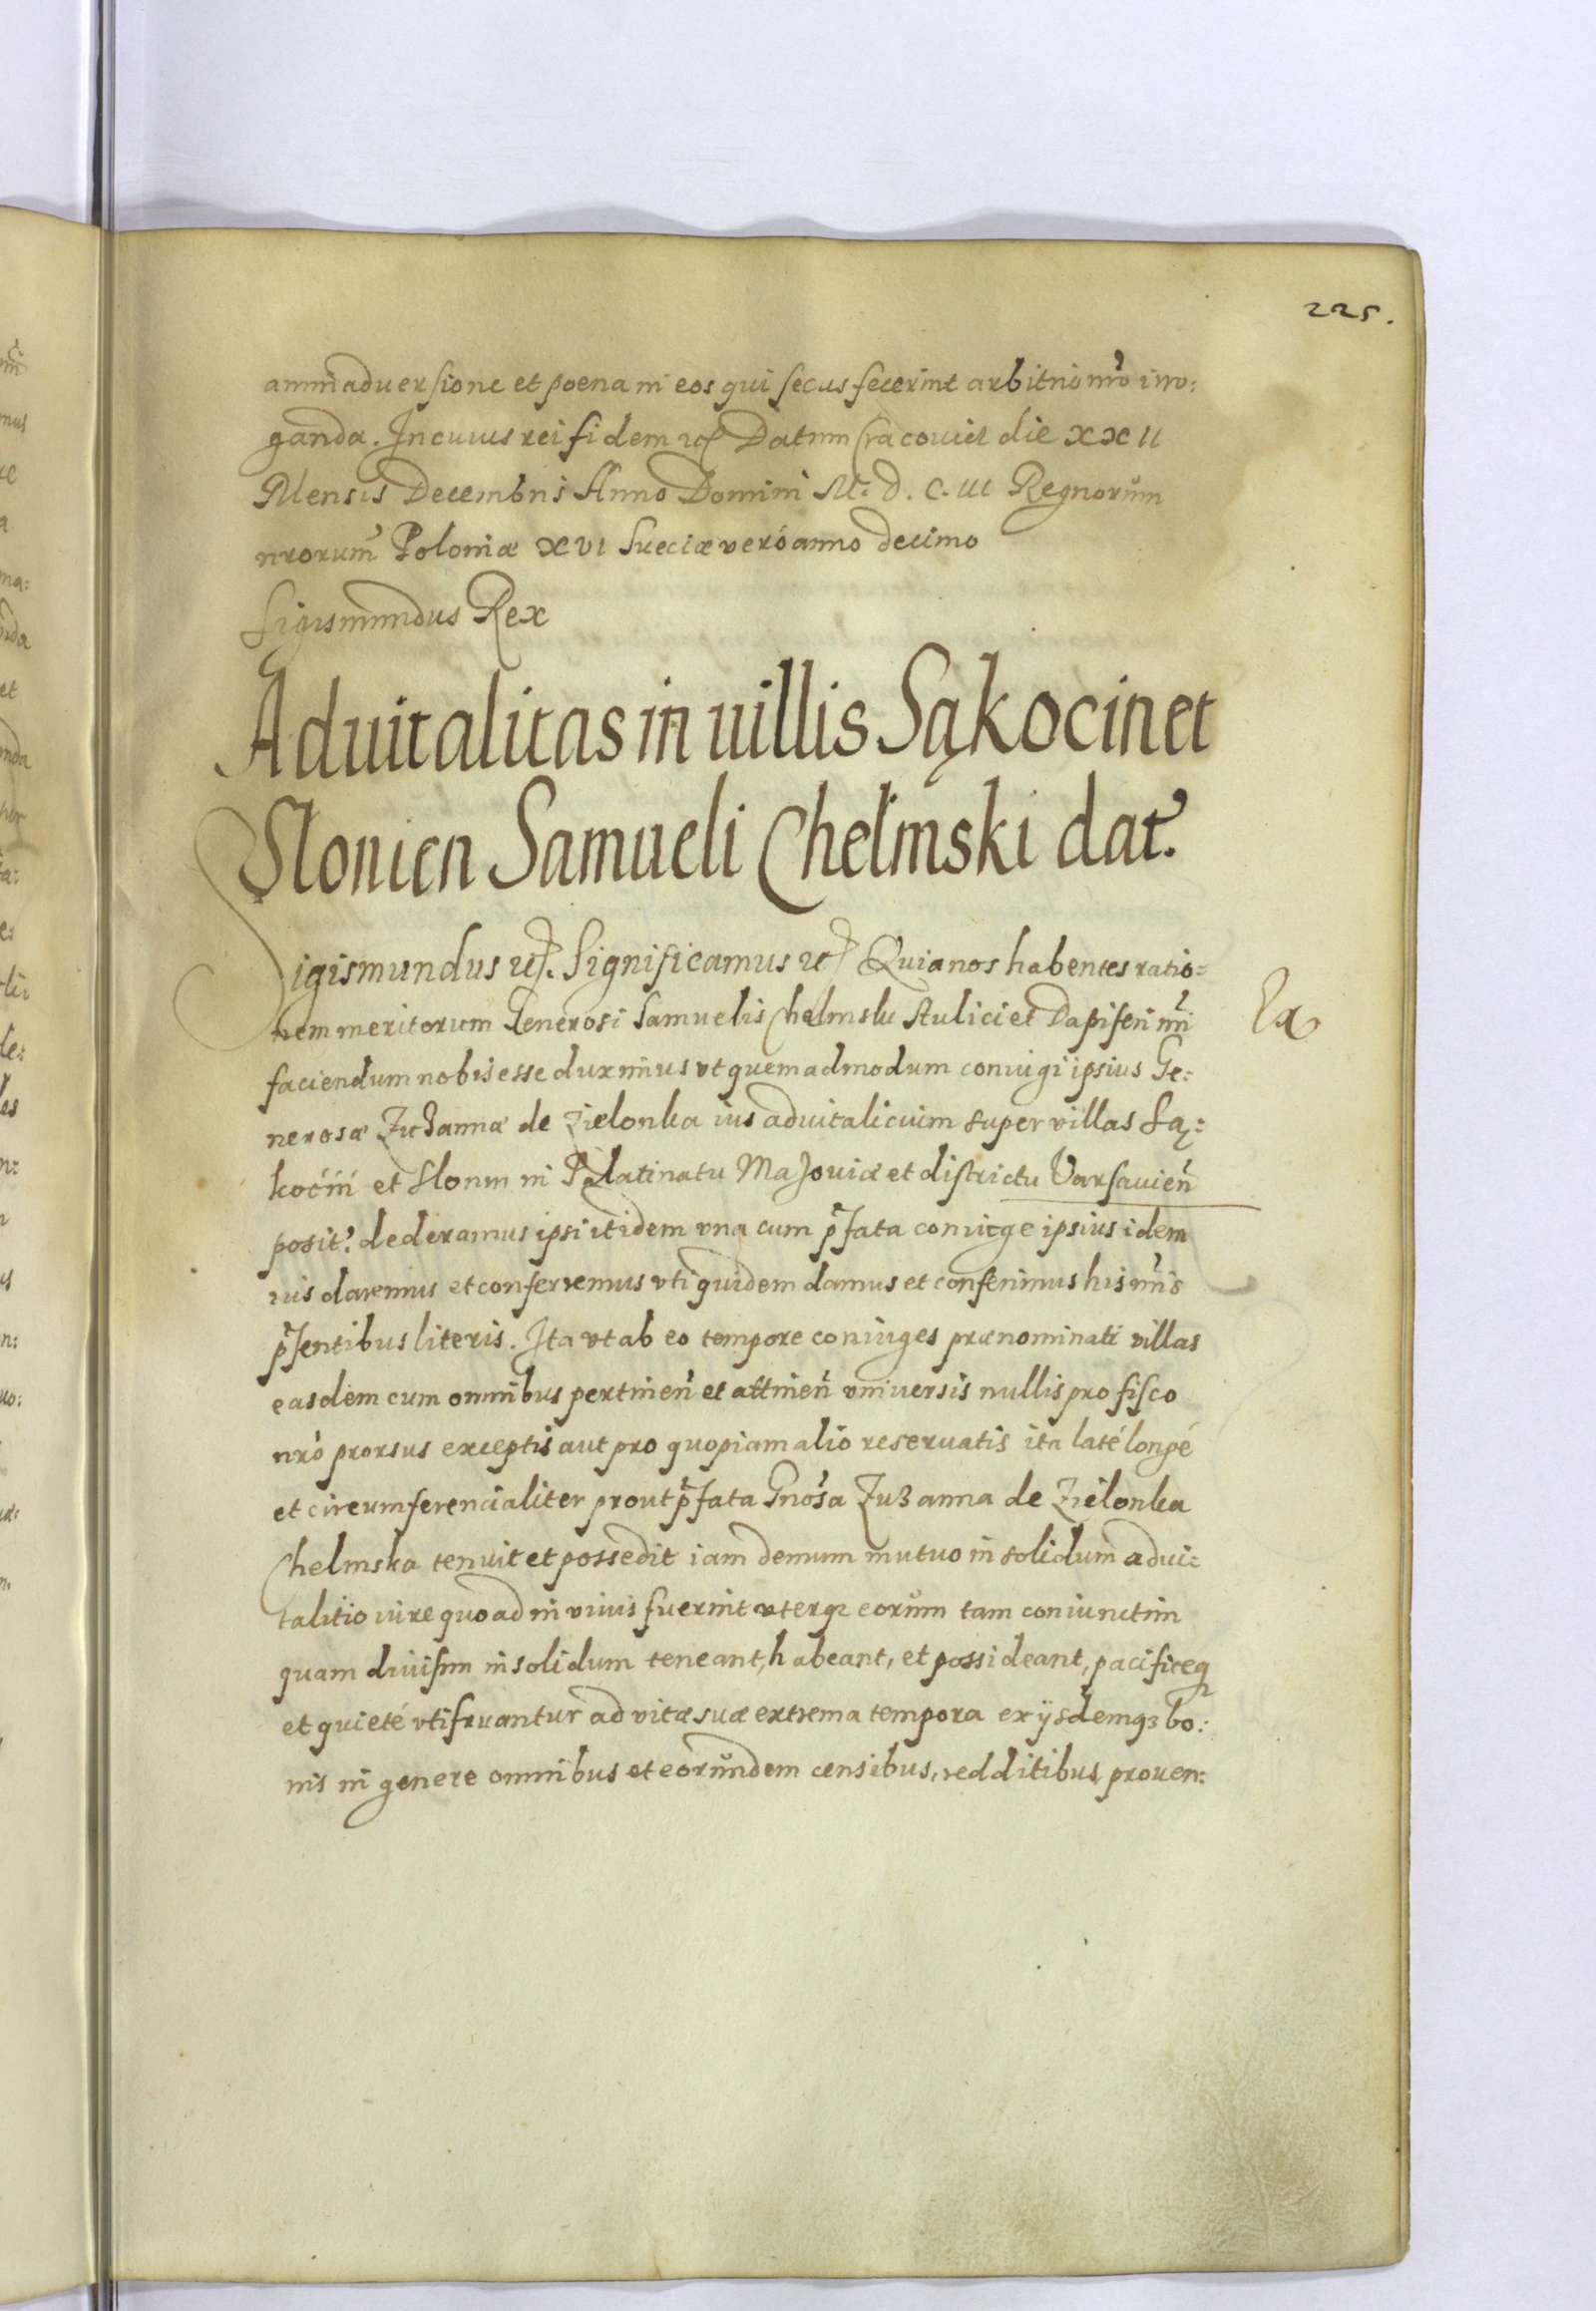 225.
animaduersione et poena in eos qui secus fecerint arbitrio nr̃o irro:
ganda. In cuius rei fidem etc Datum Cracouiæ die XXII
Mensis Decembris Anno Domini M. D. C. III Regnorum
nrorum Poloniæ XVI Sueciæ veró anno decimo
Sigismundus Rex
Aduitalitas in uillis Sąkocin et
Slonien Samueli Chelmski dat.
Sigismundus etc. Significamus etc Quia nos habentes ratio=
nem meritorum Generosi Samuelis Chelmski Aulici et Dapiferi nr̃i
faciendum nobis esse duximus vt quemadmodum coniugi ipsius Ge:
nerosæ Zuzannæ de Zielonka ius aduitalicium super villas Są:
kocin et Slonin in Palatinatu Masouiæ et districtu Varsauien̄
posit. dederamus ipsi itidem vna cum p̄fata coniuge ipsius idem
ius daremus et conferremus vti quidem damus et conferimus his nr̃is
p̄sentibus literis. Ita vt ab eo tempore coniuges prænominati villas
easdem cum omnibus pertinen̄ et attinen̄ vniuersis nullis pro fisco
nr̃o prorsus exceptis aut pro quopiam alio reseruatis ita laté longé
et circumferencialiter prout p̄fata Gnosa Zuzanna de Zielonka
Chelmska tenuit et possedit iam demum mutuo in solidum adui:
talitio iure quoad in viuis fuerint vterq; eorum tam coniunctim
quam diuisim in solidum teneant, habeant, et possideant, pacificeq;
et quieté vtifruantur ad vitæ suæ extrema tempora ex ijsdemq; bo:
nis in genere omnibus et eorundem censibus, redditibus prouen: